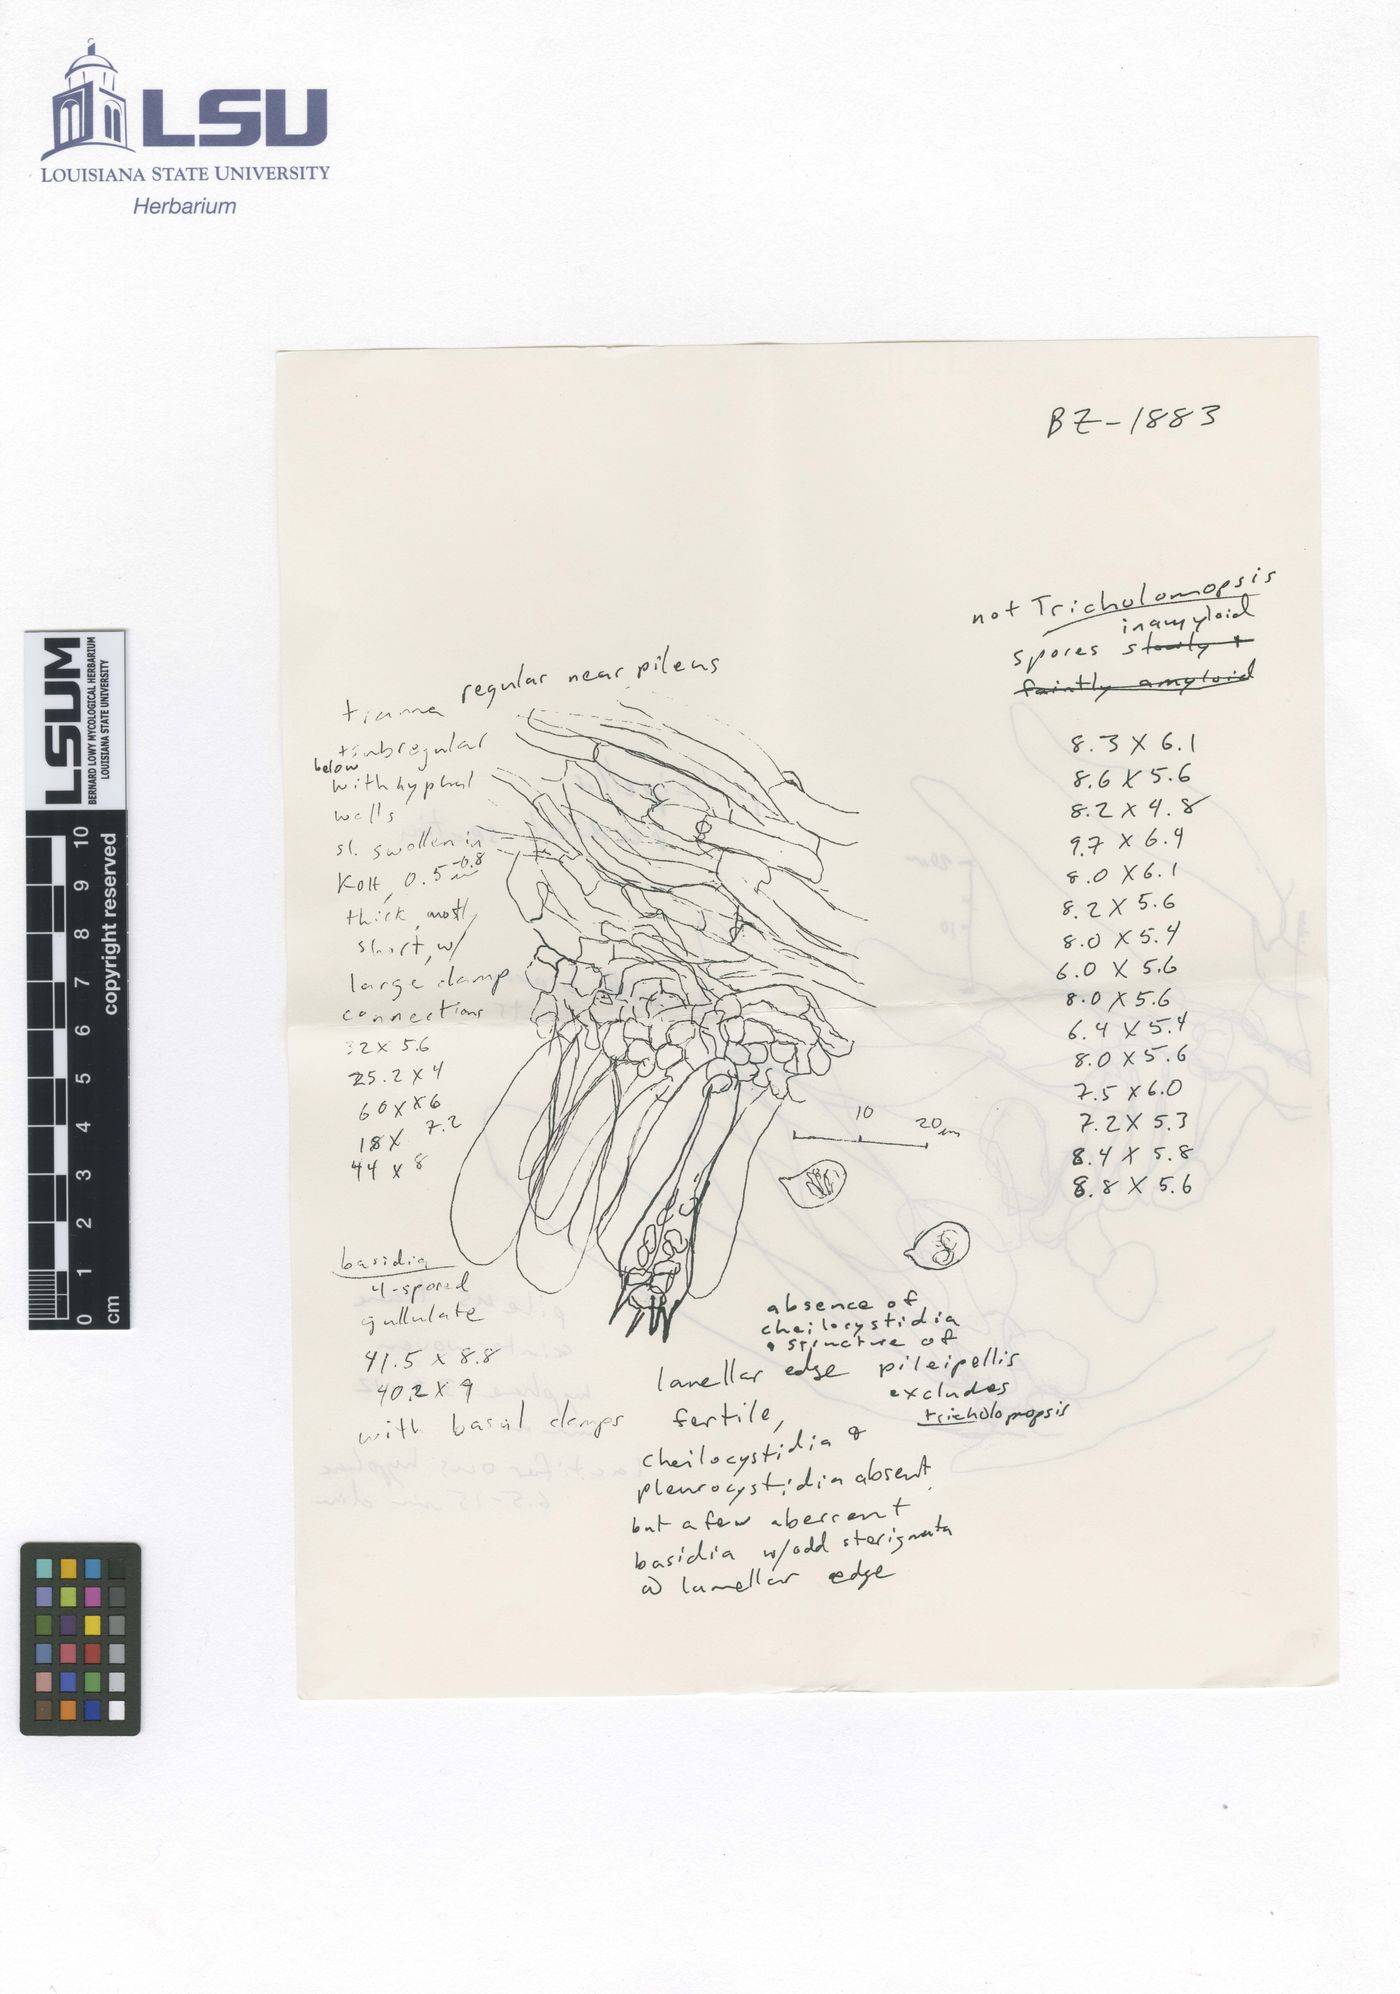 LSU
LOUISIANA STATE UNIVERSITY
Herbarium
LSUM
BERNARD LOWY MYCOLOGICAL HERBARIUM
LOUISIANA STATE UNIVERSITY
copyright reserved
10
9
8
7
6
5
4
3
2
1
0
cm
BZ-1883
not Tricholomopsis
inamyloid
spores slowly +
faintly amyloid
8.3 X 6.1
8.6 X 5.6
8.2 X 4.8
9.7 X 6.4
8.0 X 6.1
8.2 X 5.6
8.0 X 5.4
6.0 X 5.6
8.0 X 5.6
6.4 X 5.4
8.0 X 5.6
7.5 X 6.0
7.2 X 5.3
8.4 X 5.8
8.8 X 5.6
trama regular near pileus
subregular
below
with hyphal
walls
sl. swollen in
KOH, 0.5-0.8
thick, mostly
short, w/
large clamp
connections
32 X 5.6
25.2 X 4
60 X 6
18 X 7.2
44 X 8
10 20
basidia
4-spored
gullulate
41.5 X 8.8
40.2 X 9
with basal clamps
absence of
cheilocystidia
structure of
pileipellis
excludes
tricholomopsis
lamellar edge
fertile,
cheilocystidia &
pleurocystidia absent
but a few aberrent
basidia w/odd sterigmata
@ lamellar edge